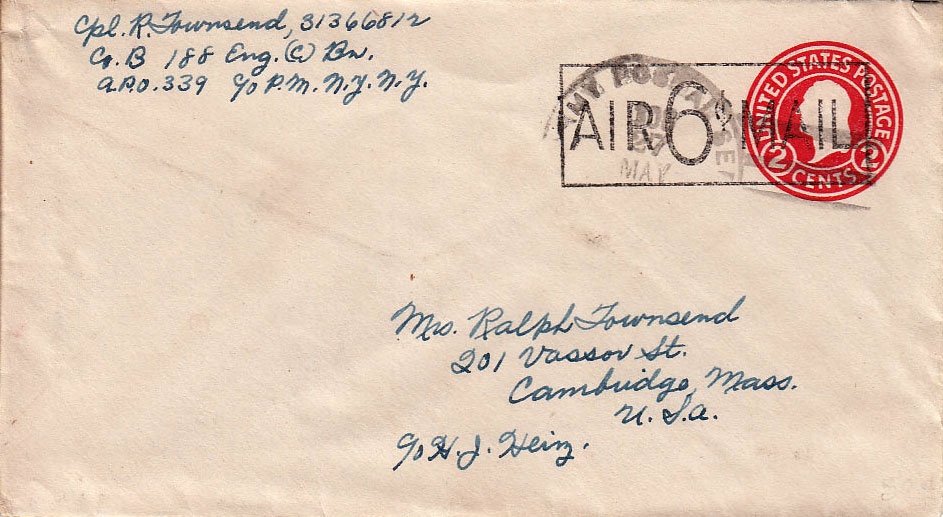 Cpl. R. Townsend, 31366812
Co. B 188 Eng. (C) Bn.
A.P.O. 339 c/o P.M. N.Y. N.Y.
AIR 6¢ MAIL
MAY
UNITED STATES POSTAGE
2 CENTS 2
Mrs. Ralph Townsend
201 Vassor St.
Cambridge, Mass.
U.S.a.
c/o H. J. Heinz.